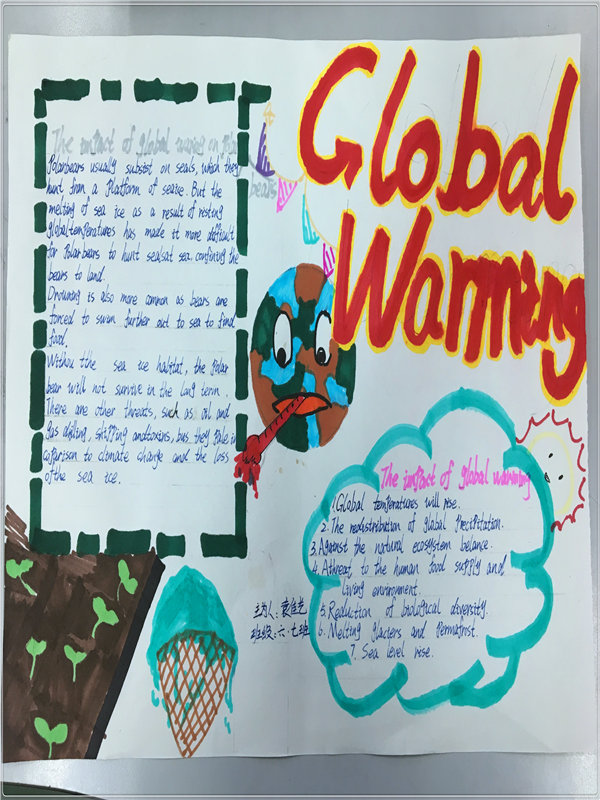 Global
Warming
The impact of global waring on Polar
bears
Polarbears usually subsist on seals, which they
hunt from a platform of seaice. But the
melting of sea ice as a result of risting
globaltemperatures has made it more difficult
for Polarbears to hunt sealsat sea, confining the
bears to land.
Drowning is also more common as bears are
forced to swim further out to sea to find
food.
Withou tthe sea ice habitat, the polar
bear will not survive in the long term.
There are other threats, such as oil and
gas drilling, shipping andtoxins, bus they pale in
coparison to climate change and the loss
ofthe sea ice.
The impact of global warming
1.Global temperatures will rise.
2. The redistribution of global Precipitation.
3.Against the natural ecosystem belance.
4.Athreat to the human food supply and
living environment.
5.Reduction of biological diversity.
6. Melting glaciers and Permafrost.
7. Sea level rise.
班级:六.七班